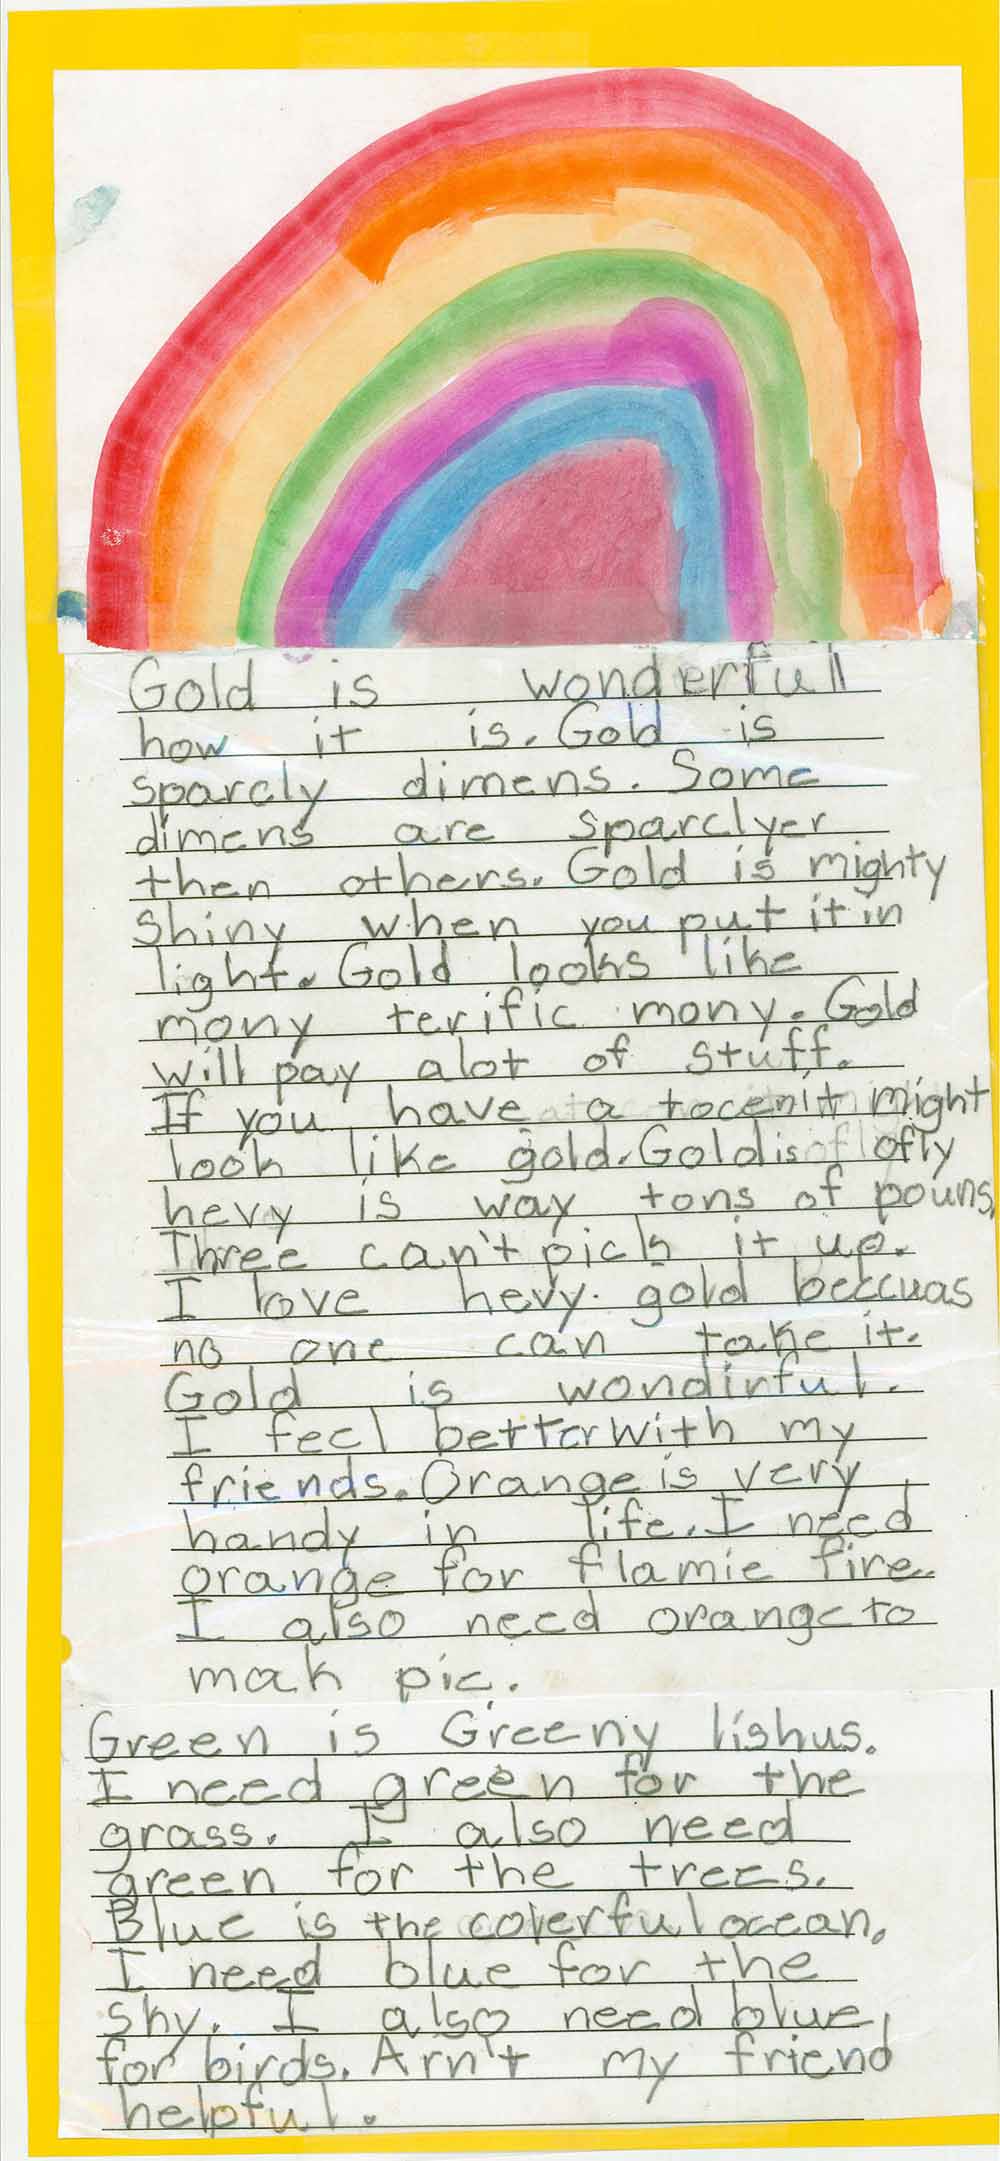 Gold is wonderfull
how it is. Gold is
sparcly dimens. Some
dimens are sparclyer
then others. Gold is mighty
shiny when you put it in
light. Gold looks like
mony terific mony. Gold
will pay alot of stuff.
If you have a tocenit might
look like gold. Gold is ofly
hevy is way tons of pouns.
Three can't pick it up.
I love hevy gold beccuas
no one can take it.
Gold is wondirful.
I feel better with my
friends. Orange is very
handy in life. I need
orange for flamie fire.
I also need orange to
mak pic.
Green is Greeny lishus.
I need green for the
grass. I also need
green for the trees.
Blue is the colerful ocean.
I need blue for the
sky. I also need blue
for birds. Arn't my friend
helpful.